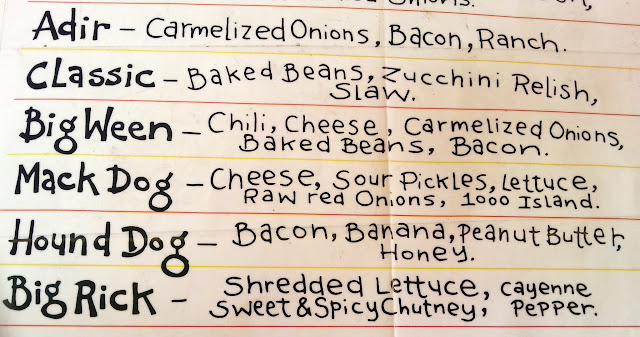 Onions.
Adir - Carmelized Onions, Bacon, Ranch.
Classic - Baked Beans, Zucchini Relish,
Slaw.
Big Ween - Chili, Cheese, Carmelized Onions,
Baked Beans, Bacon.
Mack Dog - Cheese, Sour Pickles, Lettuce,
Raw red Onions, 1000 Island.
Hound Dog - Bacon, Banana, Peanut Butter,
Honey.
Big Rick - Shredded Lettuce, Cayenne
Sweet & Spicy Chutney, Pepper.